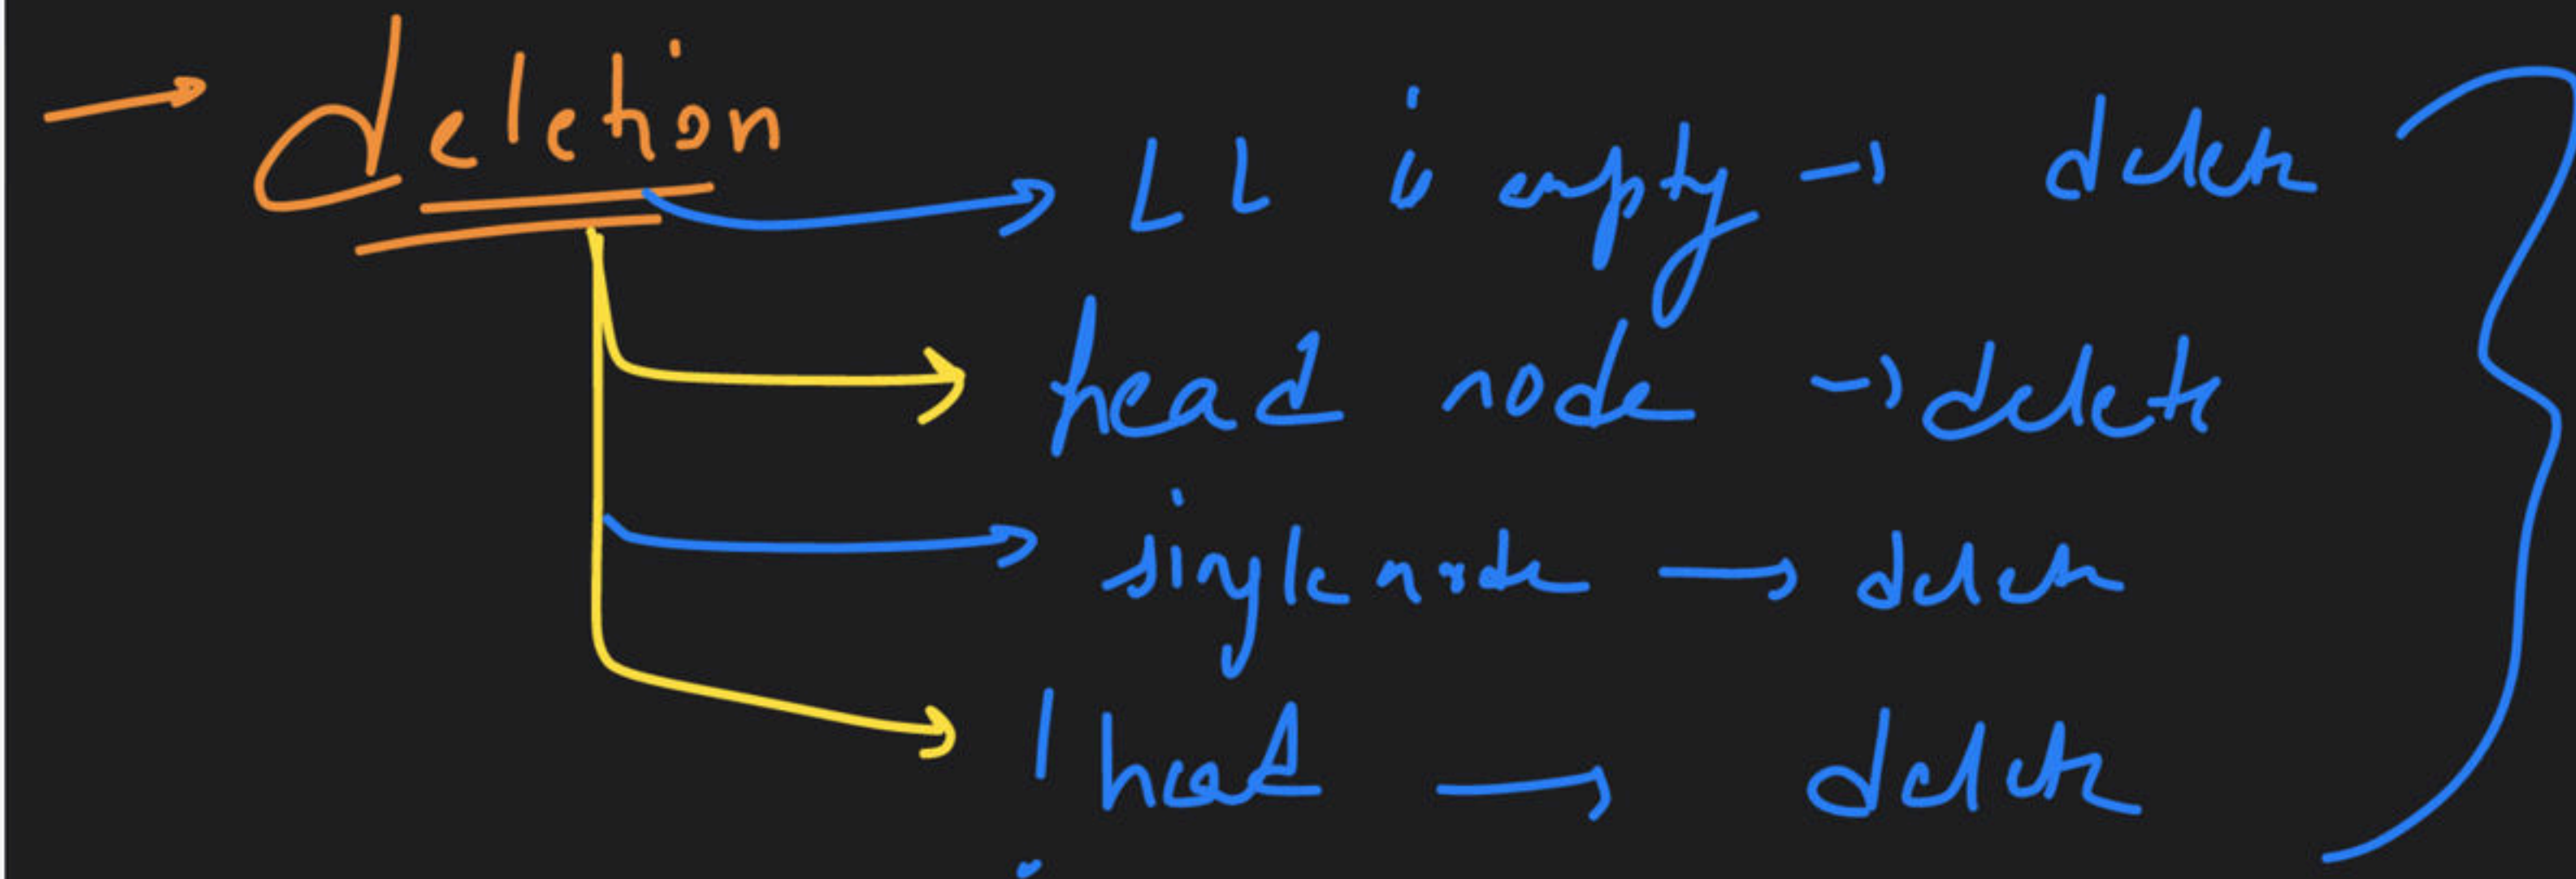 → deletion
LL is empty → delete
head node → delete
single node → delete
! head → delete